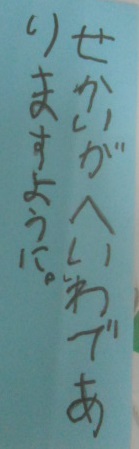 せかいがへいわであ
りますように。